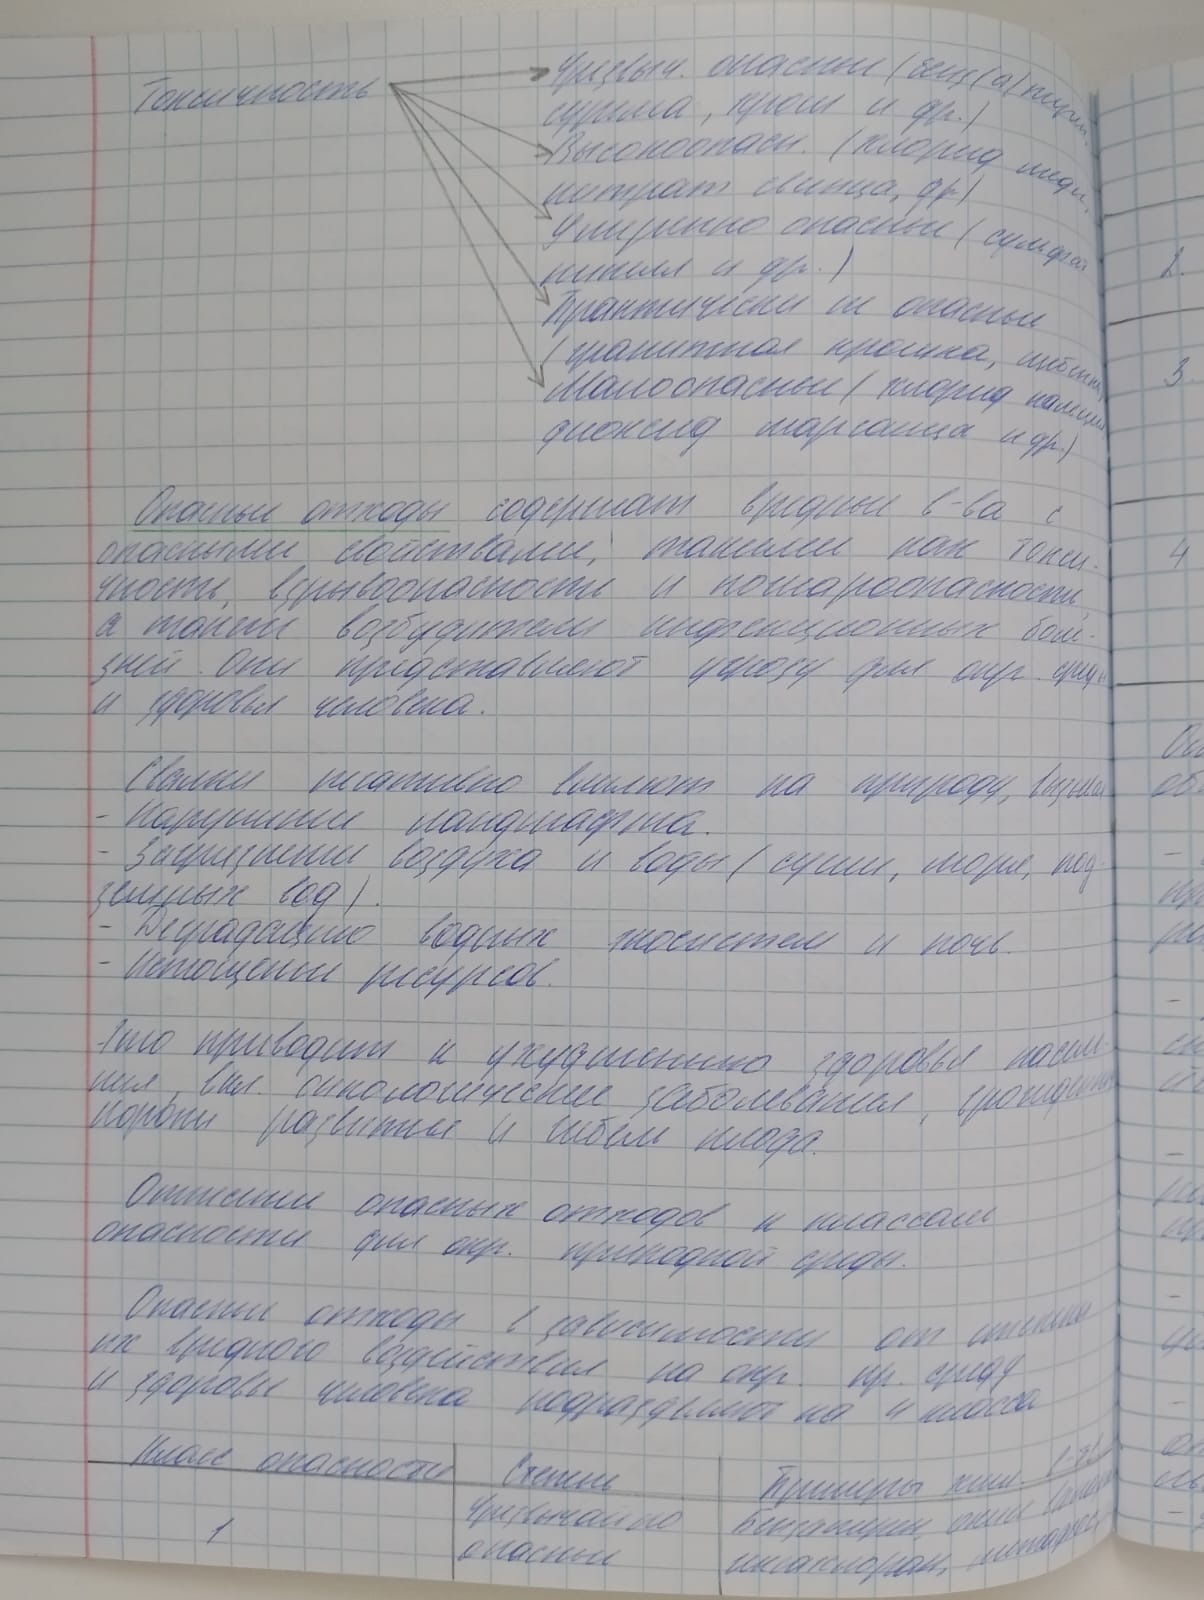 Токсичность
Чрезвыч. опасные (бенз(а)пирен,
сурьма, хром и др.)
Высокоопасн. (хлорид меди,
нитрат свинца, др)
Умеренно опасные (сульфат
никеля и др.)
Практически не опасные
(гранитная крошка, щебень)
Малоопасные (хлорид кальция
диоксид марганца и др.)
Опасные отходы содержат вредные в-ва с
опасными свойствами, такими как токси-
чность, взрывоопасности и пожароопасности,
а также возбудители инфекционных боле-
зней. Они представляют угрозу для окр. среды
и здоровья человека.
Свалки негативно влияют на природу, вызывая
- Нарушение ландшафта.
- Загрязнение воздуха и воды (суши, моря, под-
земных вод).
- Деградацию водных экосистем и почв.
- Истощение ресурсов.
Это приводит к ухудшению здоровья насел-
ния, вкл. онкологические заболевания, врожденные
пороки развития и гибель плода.
Отнесение опасных отходов к классам
опасности для окр. природной среды.
Опасные отходы в зависимости от степени
их вредного воздействия на окр. пр. среду
и здоровье человека подразделяют на 4 класса
Класс опасности Степень Примеры хим. в-в
1 Чрезвычайно Бензапирен, оксид
опасные
2.
3
4